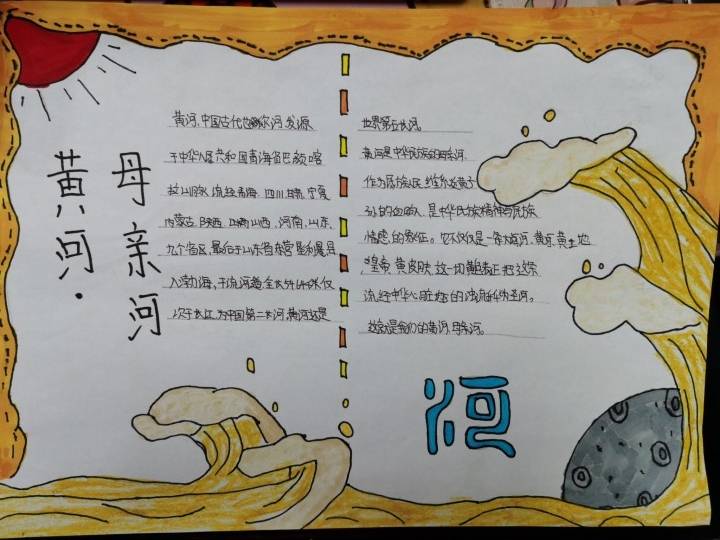 黄河·
母亲河
黄河,中国古代也称河,发源
于中华人民共和国青海省巴颜喀
拉山脉,流经青海、四川、甘肃、宁夏
内蒙古、陕西、山西、河南、山东、
九个省区,最后于山东省东营垦利县
入渤海,干流河道全长5464千米,仅
次于长江,为中国第二长河,黄河还是
世界第五长河。
黄河是中华民族的母亲河
作为民族,维系炎黄子
孙的血脉,是中华民族精神与民族
情感的象征。它不仅仅是一条大河,黄河、黄土地
,皇帝、黄皮肤,这一切黄表正把这条
流经中华心脏的浊流称为圣河。
这就是我们的黄河,母亲河。
河